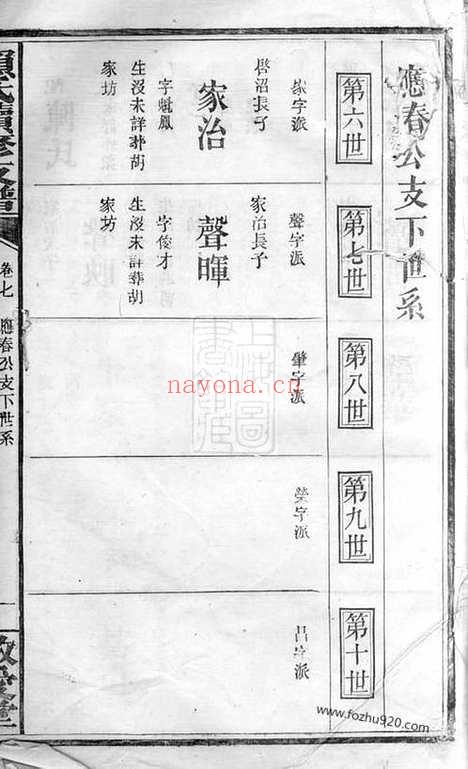 應春公支下世系
第六世
家字派
啓沼長子
家治
字魁鳳
生沒未詳葬胡
家坊
第七世
聲字派
家治長子
聲暉
字俊才
生沒未詳葬胡
家坊
第八世
肇字派
第九世
榮字派
第十世
昌字派
卷七
應春公支下世系
nayona.cn
www.fozhu920.com